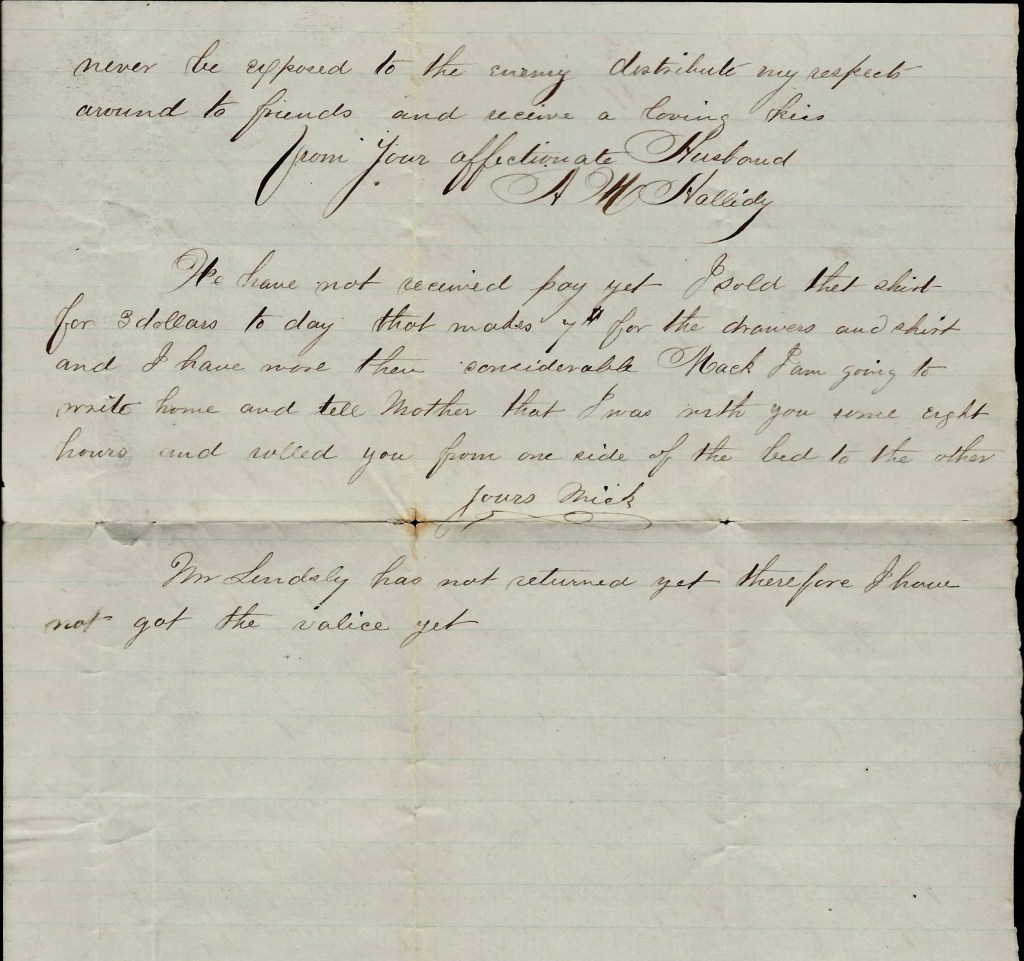 never be exposed to the enemy distribute my respects
around to friends and receive a loving kiss
from your affectionate Husband
A M Hallidy
We have not received pay yet I sold thet shirt
for 3 dollars to day that makes 7$ for the drawers and shirt
and I have more then considerable Mack I am going to
write home and tell Mother that I was with you some eight
hours and rolled you from one side of the bed to the other
yours Mick
Mr Lindsly has not returned yet therefore I have
not got the valice yet